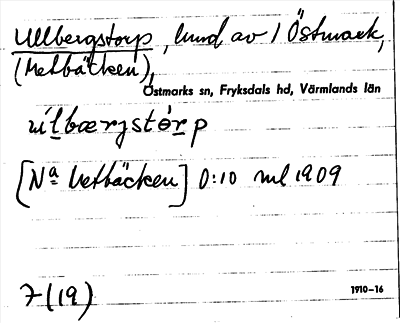 Ullbergstorp, hmd av 1 Östmark,
(Metbäcken),
Östmarks sn, Fryksdals hd, Värmlands län
ùlbærjstórp
[Na Metbäcken] 0:10 ml 1909
7(19)
1910–16